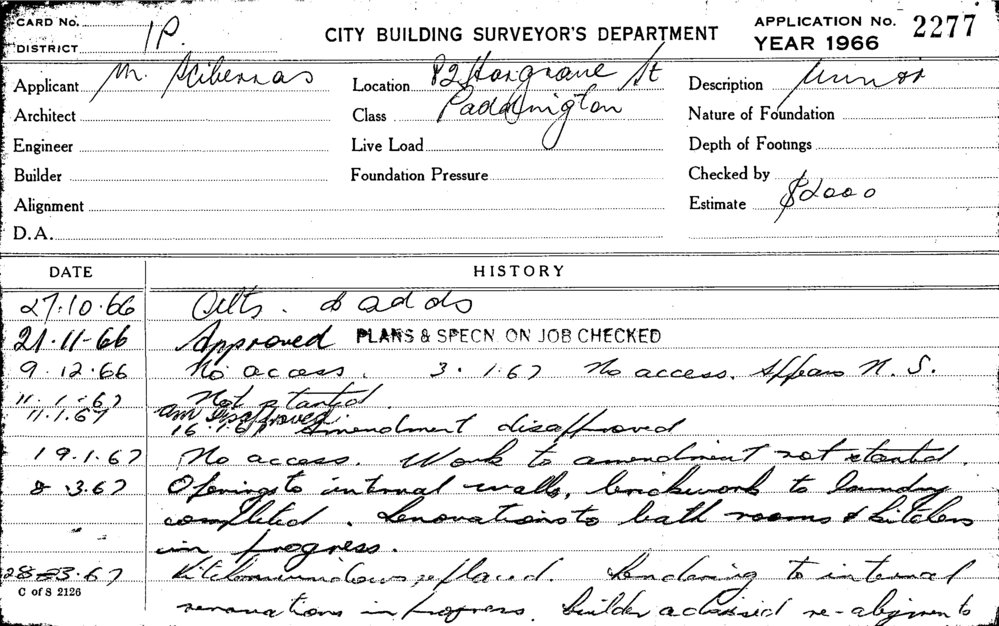 CARD No.
DISTRICT 1P.
CITY BUILDING SURVEYOR'S DEPARTMENT
APPLICATION No. 2277
YEAR 1966
Applicant M. Scibernas
Location 82 Hargrave St
Paddington
Description
Architect
Class
Nature of Foundation
Engineer
Live Load
Depth of Footings
Builder
Foundation Pressure
Checked by
Alignment
Estimate $2000
D.A.
DATE HISTORY
27.10.66 Alts. & adds
21-11-66 Approved PLANS & SPECN. ON JOB CHECKED
9.12.66 No access. 3.1.67 No access. Appears N.S.
11.1.67 Not started.
11.1.67 am disapproved.
16.1.67 Amendment disapproved
19.1.67 No access. Work to amendment not started.
8.3.67 Openings to internal walls, brickwork to laundry
completed. Renovations to bath rooms & kitchens
in progress.
28-3.67 Kitchen windows replaced. Rendering to internal
C of S 2126
renovations in progress. builder advised re-alignm to